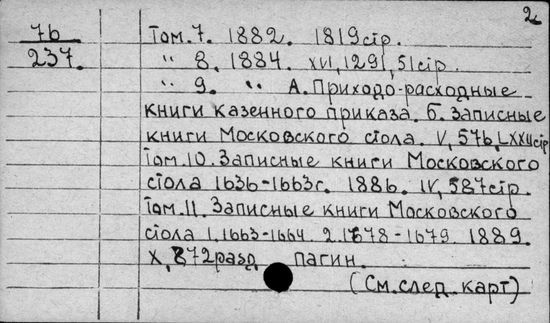 2
7b
237.
Том.7. 1882. 1819стр.
" 8. 1884. XVI, 1291, 51стр.
" 9. " А. Приходо-расходные
книги казенного приказа. б. Записные
книги Московского стола. V, 576, LXXIIстр
Том.10. Записные книги Московского
стола 1636-1663г. 1886. IV, 587стр.
Том.11. Записные книги Московского
стола 1.1663-1664. 2.1678-1679. 1889.
X, 872разд. пагин.
(См.след карт)